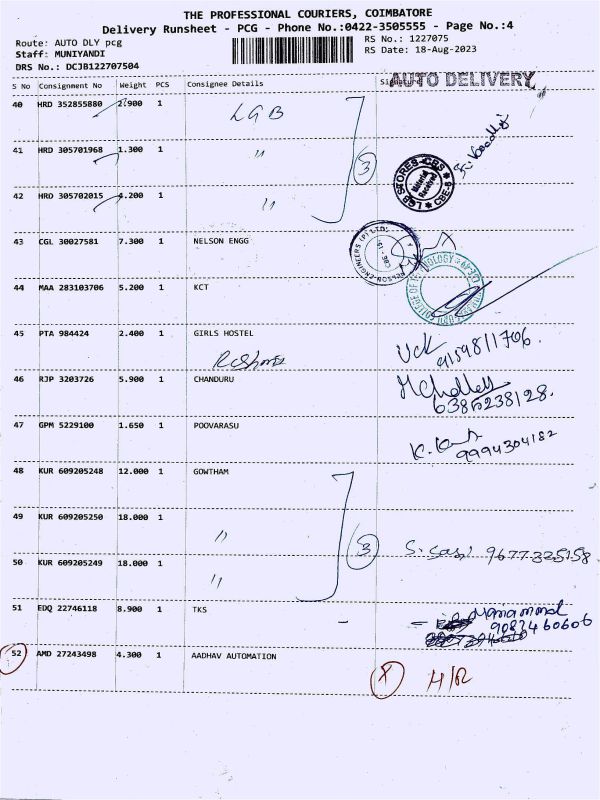 THE PROFESSIONAL COURIERS, COIMBATORE
Delivery Runsheet - PCG - Phone No.:0422-3505555 - Page No.:4
Route: AUTO DLY pcg RS No.: 1227075
Staff: MUNIYANDI RS Date: 18-Aug-2023
DRS No.: DCJB122707504
AUTO DELIVERY
S No Consignment No Weight PCS Consignee Details Signature
40 HRD 352855880 2.900 1 LGB
41 HRD 305701968 1.300 1 "
3
LGB STORES-CBS
Material Received
42 HRD 305702015 4.200 1 "
43 CGL 30027581 7.300 1 NELSON ENGG
NELSON ENGINEERS (P) LTD
44 MAA 283103706 5.200 1 KCT
45 PTA 984424 2.400 1 GIRLS HOSTEL
9159811706.
46 RJP 3203726 5.900 1 CHANDURU
6385238128.
47 GPM 5229100 1.650 1 POOVARASU
9994304182
48 KUR 609205248 12.000 1 GOWTHAM
49 KUR 609205250 18.000 1 "
3 S. Sasi 9677325158
50 KUR 609205249 18.000 1 "
51 EDQ 22746118 8.900 1 TKS
9087460606
52 AMD 27243498 4.300 1 AADHAV AUTOMATION
X H/R